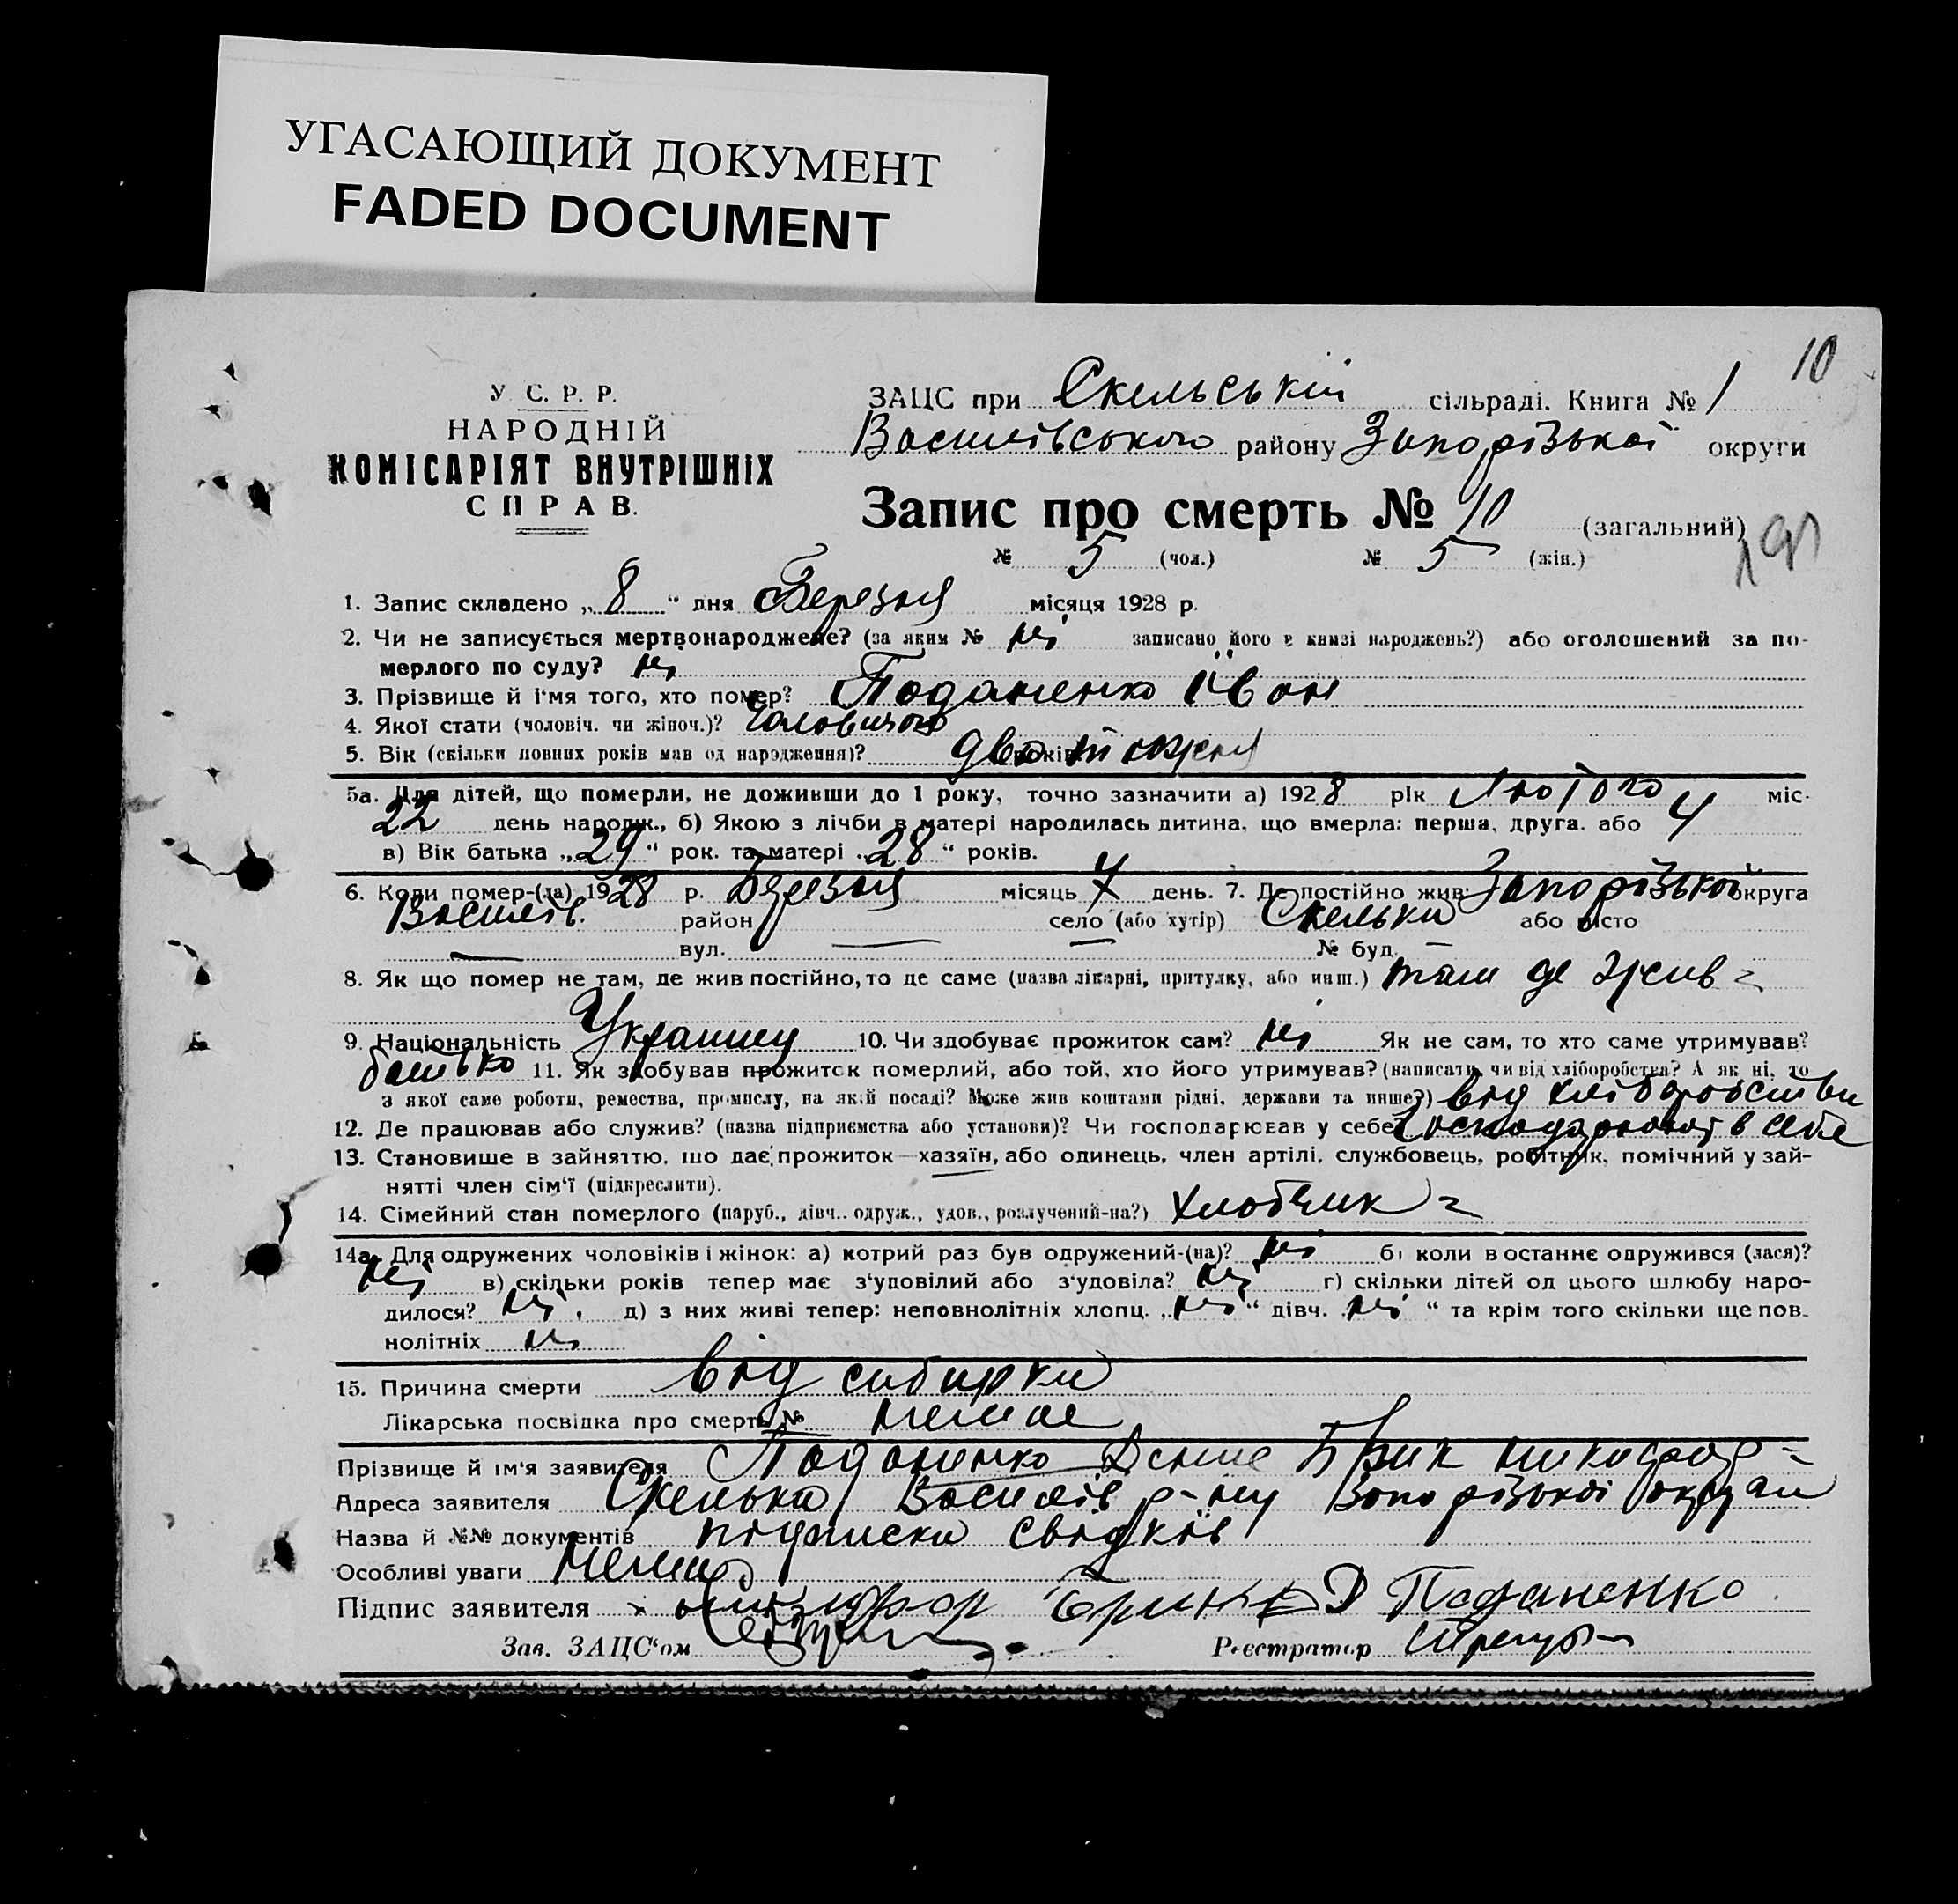 УГАСАЮЩИЙ ДОКУМЕНТ
FADED DOCUMENT
10
У С. Р. Р.
НАРОДНІЙ
КОМІСАРІЯТ ВНУТРІШНІХ
СПРАВ.
ЗАЦС при Скельській сільраді. Книга № 1
Василівського району Запорізької округи
Запис про смерть № 10 (загальний)
№ 5 (чол.) № 5 (жін.)
1. Запис складено „8“ дня Березня місяця 1928 р.
2. Чи не записується мертвонароджене? (за яким № ні записано його в книзі народжень?) або оголошений за по-
мерлого по суду? ні
3. Прізвище й і'мя того, хто помер? Поданенко Іван
4. Якої стати (чоловіч. чи жіноч.)? Чоловичого
5. Вік (скільки повних років мав од народження)? два тижня
5а. Для дітей, що померли, не доживши до 1 року, точно зазначити а) 1928 рік Лютого міс-
22 день народж., б) Якою з лічби в матері народилась дитина, що вмерла: перша, друга. або 4
в) Вік батька „29“ рок. та матері „28“ років.
6. Коли помер-(ла) 1928 р. Березня місяць 4 день. 7. Де постійно жив: Запорізької округа
Василів. район село (або хутір) Скельки або місто
— вул. — — № буд. —
8. Як що помер не там, де жив постійно, то де саме (назва лікарні, притулку, або инш.) там де жив
9. Національність Украинец 10. Чи здобуває прожиток сам? ні Як не сам, то хто саме утримував?
батько 11. Як здобував прожиток померлий, або той, хто його утримував? (написати, чи від хліборобства? А як ні, то
з якої саме роботи, ремества, промислу, на якій посаді? Може жив коштами рідні, держави та инше?) від хліборобства
12. Де працював або служив? (назва підприємства або установи)? Чи господарював у себе? в себе
13. Становище в зайнятю, що дає прожиток—хазяїн, або одинець, член артілі, службовець, робітник, помічний у зай-
нятті член сім'ї (підкреслити).
14. Сімейний стан померлого (паруб., дівч.. одруж., удов., розлучений-на?) хлобчик
14а. Для одружених чоловіків і жінок: а) котрий раз був одружений-(на)? ні б) коли в останнє одружився (лася)?
ні в) скільки років тепер має з'удовілий або з'удовіла? ні г) скільки дітей од цього шлюбу наро-
дилося? ні. д) з них живі тепер: неповнолітніх хлопц. „ні“ дівч. „ні“ та крім того скільки ще пов-
нолітніх ні
15. Причина смерти від сибирки
Лікарська посвідка про смерть № немає
Прізвище й ім'я заявителя Поданенко Денис Брик
Адреса заявителя Скелька Василів р-ну Запорізької округи
Назва й №№ документів підписка свідків
Особливі уваги Нема
Підпис заявителя Д Поданенко
Зав. ЗАЦС'ом
Реєстратор